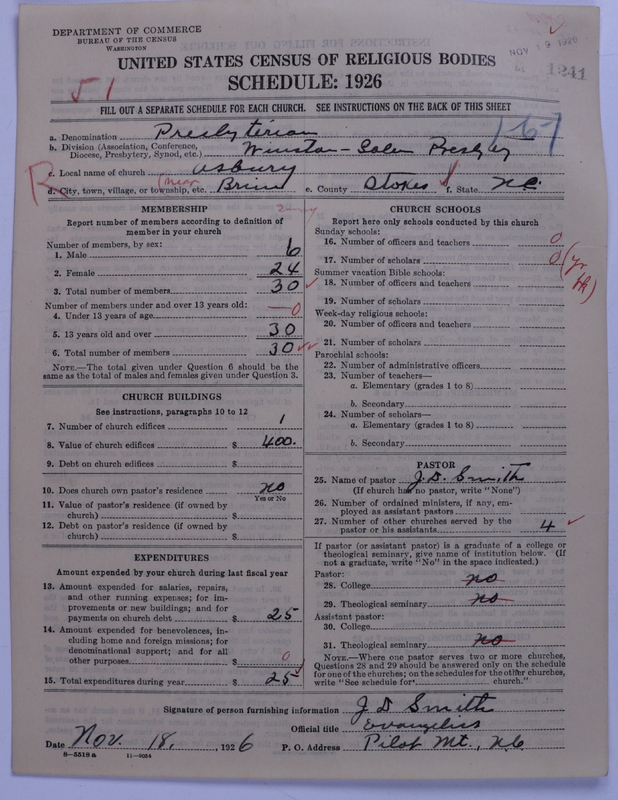 DEPARTMENT OF COMMERCE
BUREAU OF THE CENSUS
WASHINGTON
NOV 19 1926
1241
UNITED STATES CENSUS OF RELIGIOUS BODIES
SCHEDULE: 1926
51
FILL OUT A SEPARATE SCHEDULE FOR EACH CHURCH. SEE INSTRUCTIONS ON THE BACK OF THIS SHEET
a. Denomination Presbyterian
167
b. Division (Association, Conference, Diocese, Presbytery, Synod, etc.) Winston-Salem Presbey
c. Local name of church Asbury
R
d. City, town, village, or township, etc. (Near) Brim e. County Stokes f. State N.C.
MEMBERSHIP
Report number of members according to definition of
member in your church
Number of members, by sex:
1. Male 6
2. Female 24
3. Total number of members 30
Number of members under and over 13 years old:
4. Under 13 years of age 0
5. 13 years old and over 30
6. Total number of members 30
NOTE.—The total given under Question 6 should be the
same as the total of males and females given under Question 3.
CHURCH BUILDINGS
See instructions, paragraphs 10 to 12
7. Number of church edifices 1
8. Value of church edifices $ 400.
9. Debt on church edifices $
10. Does church own pastor's residence no
Yes or No
11. Value of pastor's residence (if owned by
church) $
12. Debt on pastor's residence (if owned by
church) $
EXPENDITURES
Amount expended by your church during last fiscal year
13. Amount expended for salaries, repairs,
and other running expenses; for im-
provements or new buildings; and for
payments on church debt $ 25
14. Amount expended for benevolences, in-
cluding home and foreign missions; for
denominational support; and for all
other purposes $ 0
15. Total expenditures during year $ 25
CHURCH SCHOOLS
Report here only schools conducted by this church
Sunday schools:
16. Number of officers and teachers 0
17. Number of scholars 0
Summer vacation Bible schools:
18. Number of officers and teachers
19. Number of scholars
Week-day religious schools:
20. Number of officers and teachers
21. Number of scholars
Parochial schools:
22. Number of administrative officers
23. Number of teachers—
a. Elementary (grades 1 to 8)
b. Secondary
24. Number of scholars—
a. Elementary (grades 1 to 8)
b. Secondary
PASTOR
25. Name of pastor J.D. Smith
(If church has no pastor, write "None")
26. Number of ordained ministers, if any, em-
ployed as assistant pastors
27. Number of other churches served by the
pastor or his assistants 4
If pastor (or assistant pastor) is a graduate of a college or
theological seminary, give name of institution below. (If
not a graduate, write "No" in the space indicated.)
Pastor:
28. College no
29. Theological seminary no
Assistant pastor:
30. College
31. Theological seminary no
NOTE.—Where one pastor serves two or more churches,
Questions 28 and 29 should be answered only on the schedule
for one of the churches; on the schedules for the other churches,
write "See schedule for church."
Signature of person furnishing information J.D Smith
Official title Evangelist
Date Nov. 18, 1926 P. O. Address Pilot Mt., N.C
8—5518a 11—9034